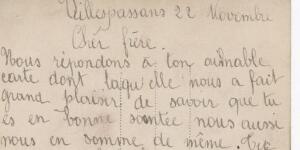 Villespassans 22 Novembre
Chèr frère.
Nous répondons à ton aimable
carte dont laqu'elle nous a fait
grand plaisir de savoir que tu
és en bonne santée nous aussi
nous en somme de même.